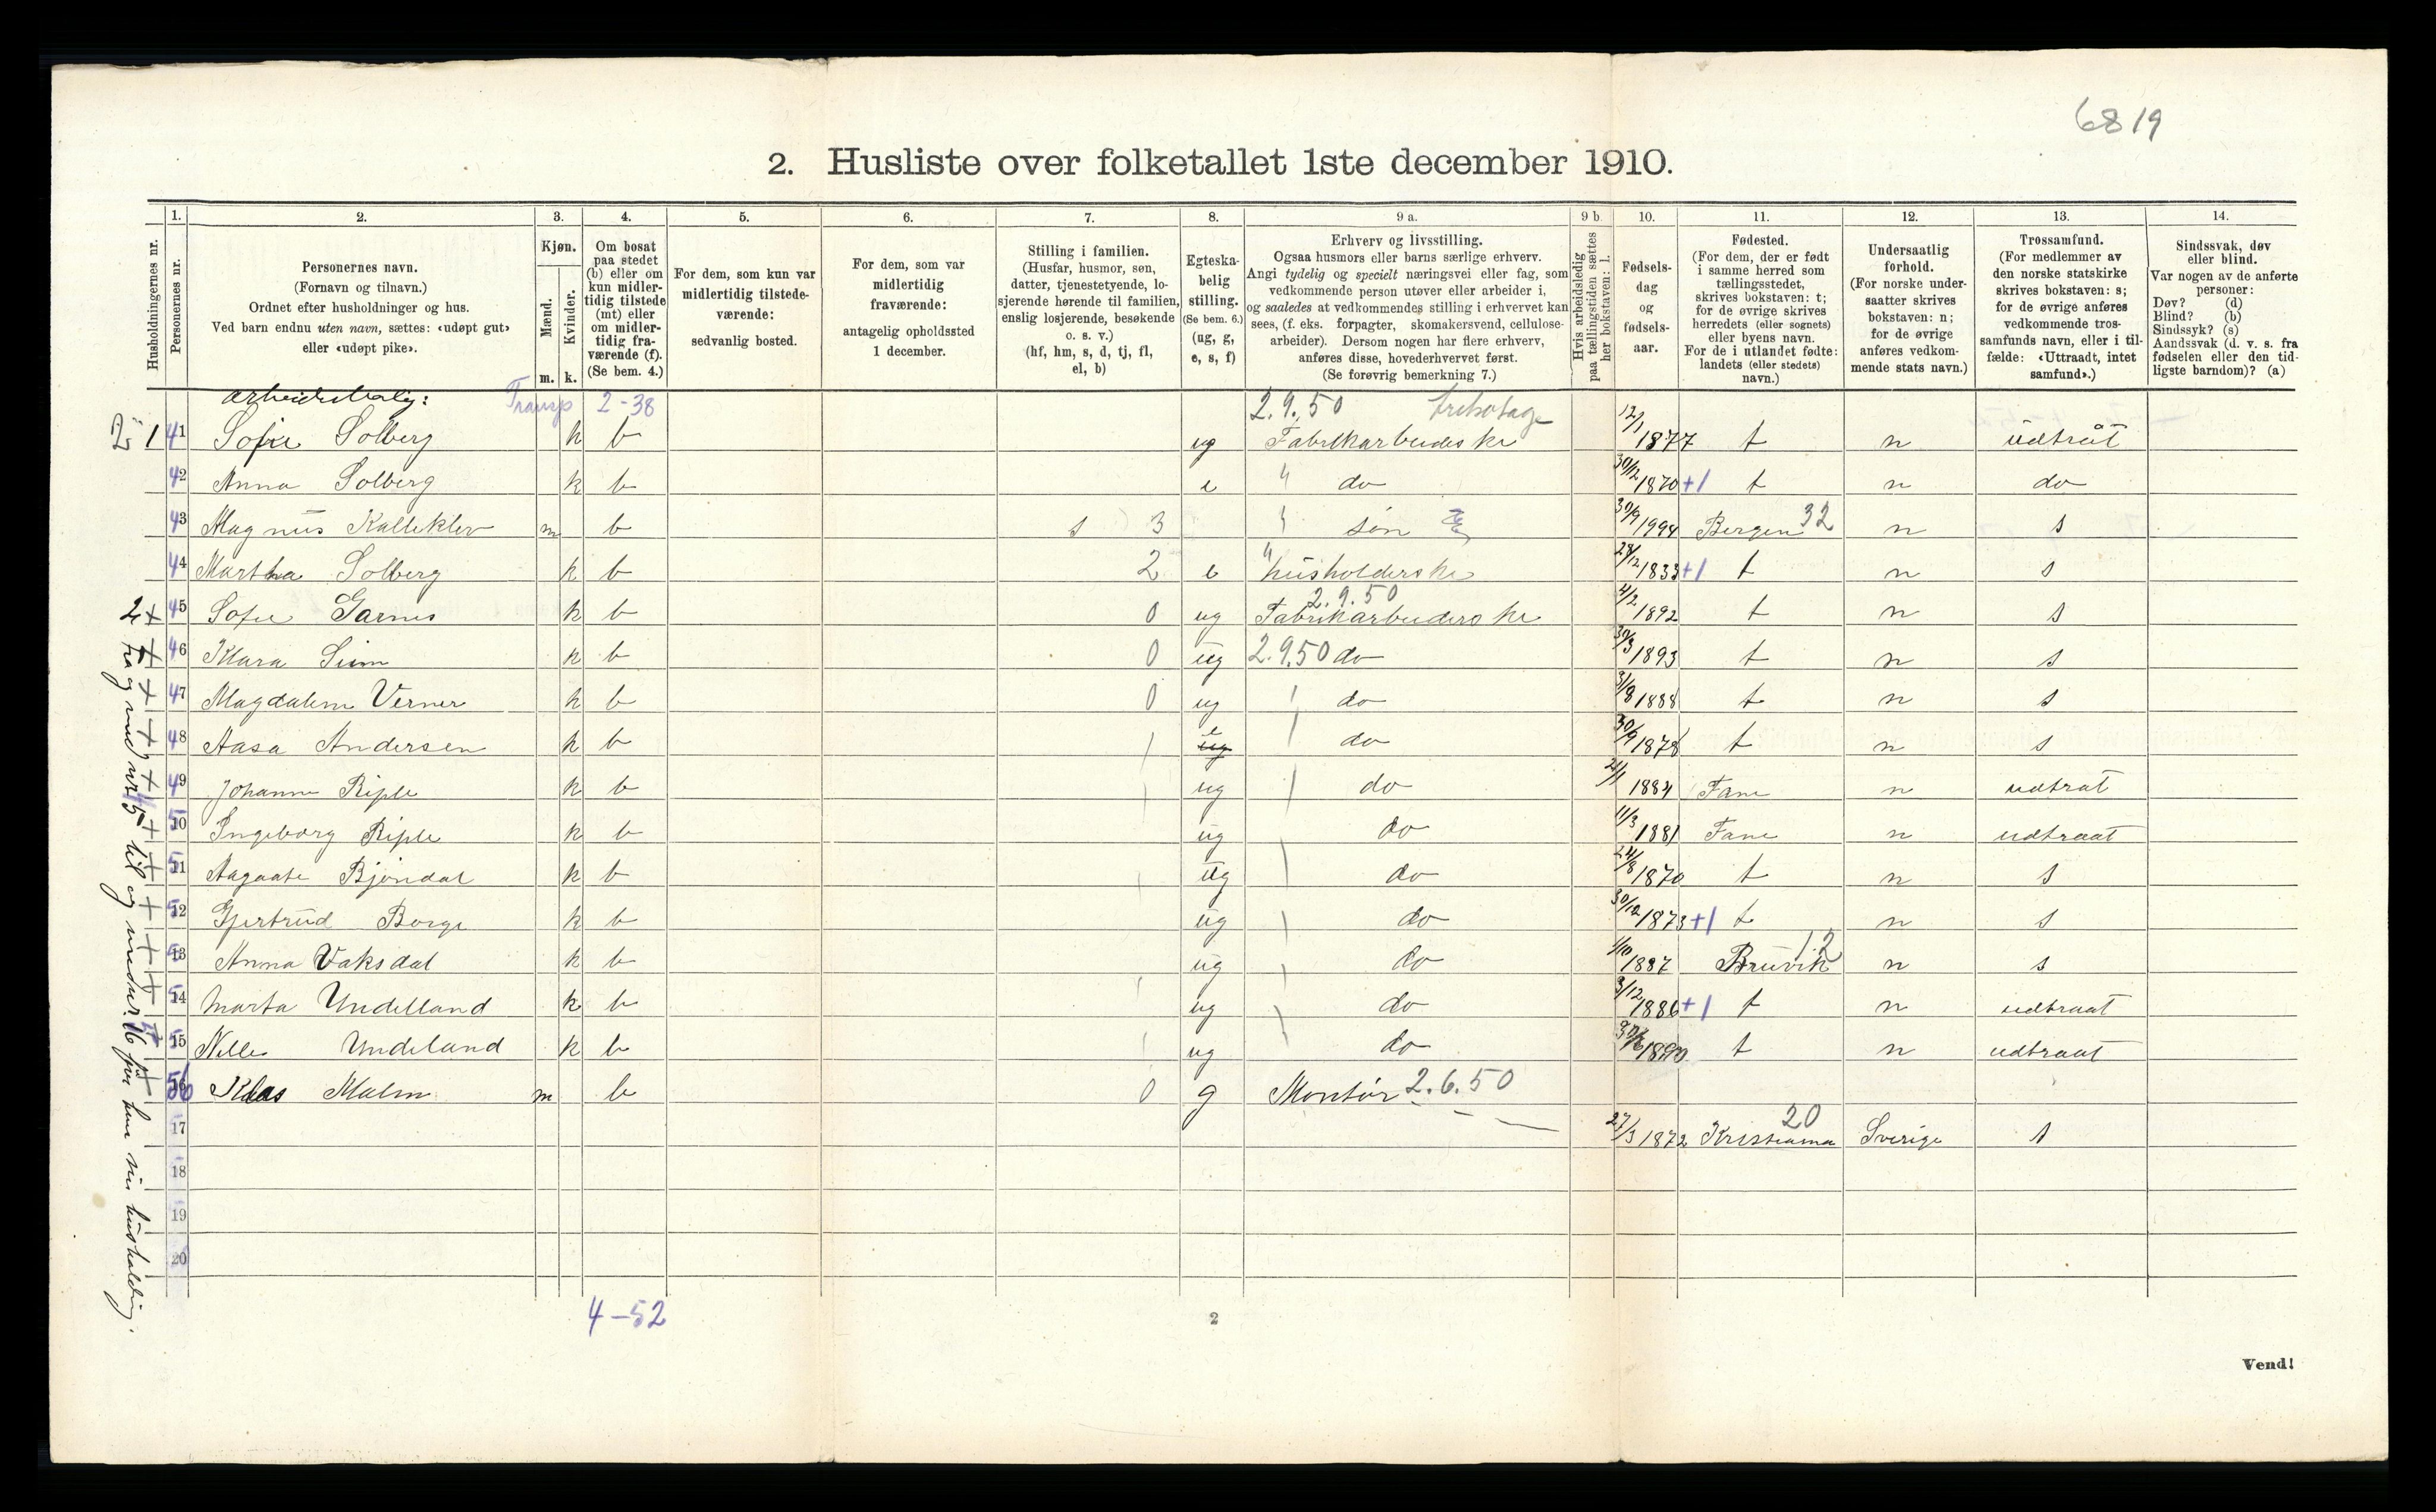 6819
2. Husliste over folketallet 1ste december 1910.
Husholdningernes nr.
1. Personernes nr.
2. Personernes navn.
(Fornavn og tilnavn.)
Ordnet efter husholdninger og hus.
Ved barn endnu uten navn, sættes: «udøpt gut»
eller «udøpt pike».
3. Kjøn.
Mænd. m.
Kvinder. k.
4. Om bosat
paa stedet
(b) eller om
kun midler-
tidig tilstede
(mt) eller
om midler-
tidig fra-
værende (f).
(Se bem. 4.)
5. For dem, som kun var
midlertidig tilstede-
værende:
sedvanlig bosted.
6. For dem, som var
midlertidig
fraværende:
antagelig opholdssted
1 december.
7. Stilling i familien.
(Husfar, husmor, søn,
datter, tjenestetyende, lo-
sjerende hørende til familien,
enslig losjerende, besøkende
o. s. v.)
(hf, hm, s, d, tj, fl,
el, b)
8. Egteska-
belig
stilling.
(Se bem. 6.)
(ug, g,
e, s, f)
9 a. Erhverv og livsstilling.
Ogsaa husmors eller barns særlige erhverv.
Angi tydelig og specielt næringsvei eller fag, som
vedkommende person utøver eller arbeider i,
og saaledes at vedkommendes stilling i erhvervet kan
sees, (f. eks. forpagter, skomakersvend, cellulose-
arbeider). Dersom nogen har flere erhverv,
anføres disse, hovederhvervet først.
(Se forøvrig bemerkning 7.)
9 b. Hvis arbeidsledig
paa tællingstiden sættes
her bokstaven: l.
10. Fødsels-
dag
og
fødsels-
aar.
11. Fødested.
(For dem, der er født
i samme herred som
tællingsstedet,
skrives bokstaven: t;
for de øvrige skrives
herredets (eller sognets)
eller byens navn.
For de i utlandet fødte:
landets (eller stedets)
navn.)
12. Undersaatlig
forhold.
(For norske under-
saatter skrives
bokstaven: n;
for de øvrige
anføres vedkom-
mende stats navn.)
13. Trossamfund.
(For medlemmer av
den norske statskirke
skrives bokstaven: s;
for de øvrige anføres
vedkommende tros-
samfunds navn, eller i til-
fælde: «Uttraadt, intet
samfund».)
14. Sindssvak, døv
eller blind.
Var nogen av de anførte
personer:
Døv? (d)
Blind? (b)
Sindssyk? (s)
Aandssvak (d. v. s. fra
fødselen eller den tid-
ligste barndom)? (a)
Arbeiderbolig: Transp 2-38 2.9.50 trikotage
1 41 Sofie Solberg k b ug Fabrikarbeiderske 12/1 1877 t n udtråt
42 Anna Solberg k b e " do 30/12 1870 +1 t n do
43 Magnus Kalleklev m b s 3 søn 30/9 1994 Bergen 32 n s
44 Martha Solberg k b 2 e husholderske 24/12 1833 +1 t n s
2.9.50
2 + 45 Sofie Garnes k b 0 ug Fabrikarbeiderske 4/2 1892 t n s
+ 46 Klara Siim k b 0 ug 2.9.50 do 30/3 1893 t n s
+ 47 Magdalene Verner k b 0 ug do 31/8 1888 t n s
+ 48 Aasa Andersen k b e do 30/9 1878 t n s
+ 49 Johanne Riple k b ug do 1884 Fane n udtrat
+ 50 Ingeborg Riple k b ug do 11/3 1881 Fane n udtraat
+ 51 Aagaate Bjøndal k b ug do 24/8 1870 t n s
+ 52 Gjertrud Borge k b ug do 30/12 1873 +1 t n s
+ 53 Anna Vaksdal k b ug do 1/10 1887 Bruvik 12 n s
+ 54 Marta Undelland k b ug do 3/12 1886 +1 t n udtraat
+ 55 Nelle Undeland k b ug do 1890 t n udtraat
+ 56 Klas Malm m b 0 g Montør 2.6.50
17 27/3 1872 Kristiania 20 Sverige s
18
19
20
fra og med nr 45 til og med nr. 56 har hver sin husholdning.
4-52
2
Vend!